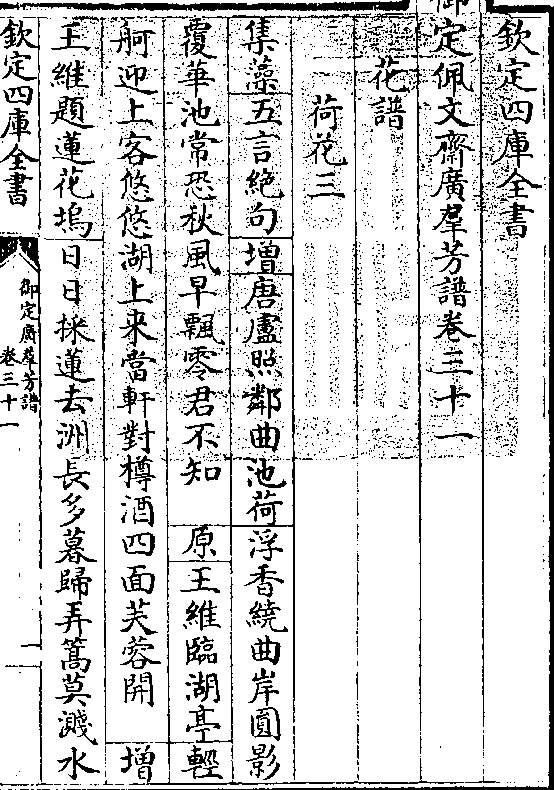 欽定四庫全書
御定佩文齋廣羣芳譜卷三十一
花譜
荷花三
集藻五言絶句增唐盧照鄰曲池荷浮香繞曲岸圓影
覆華池常恐秋風早飄零君不知 原王維臨湖亭輕
舸迎上客悠悠湖上來當軒對樽酒四面芙蓉開 增
王維題蓮花塢日日採蓮去洲長多暮歸弄篙莫濺水
欽定四庫全書
御定廣羣芳譜
卷三十一
一